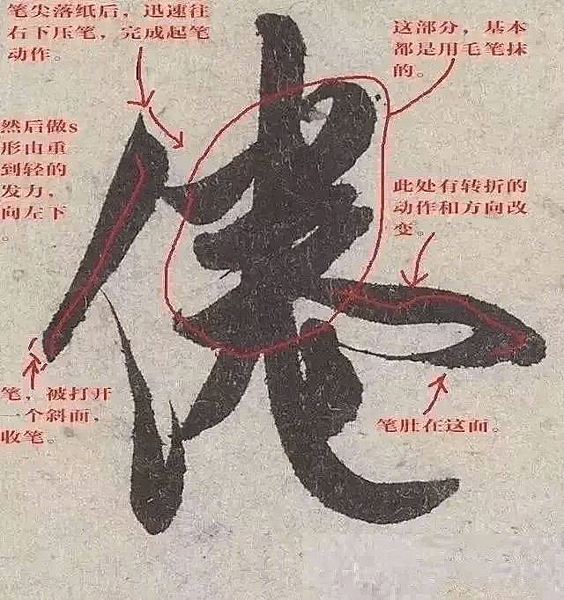 笔尖落纸后，迅速往
右下压笔，完成起笔
动作。
这部分，基本
都是用毛笔抹
的。
然后做s
形由重
到轻的
发力，
向左下
。
此处有转折的
动作和方向改
变。
倦
笔，被打开
一个斜面，
收笔。
笔肚在这面。